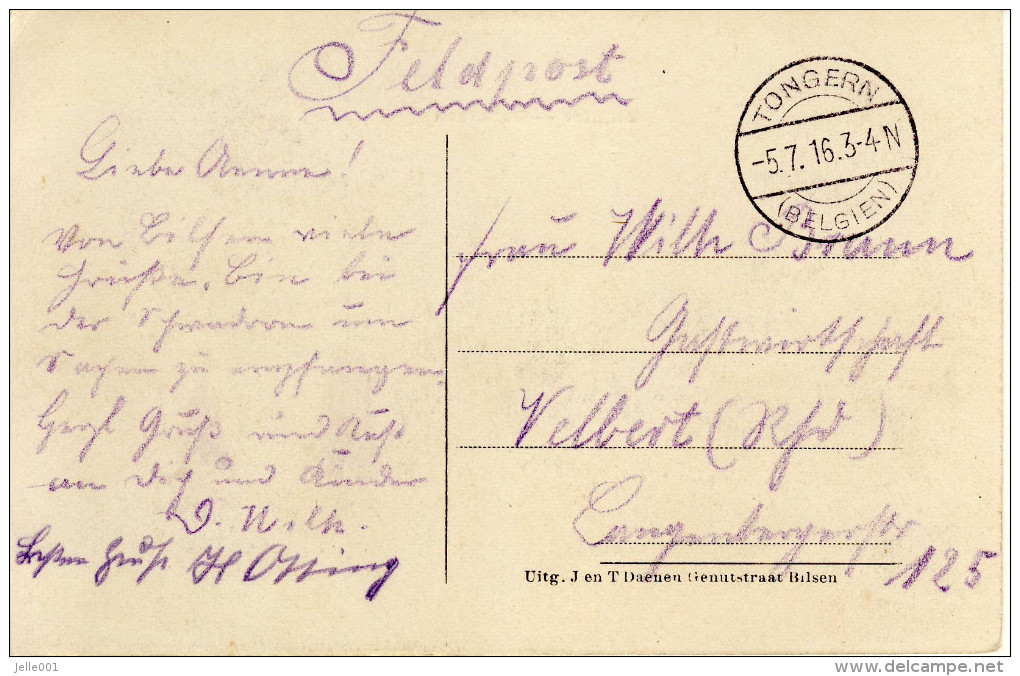 Feldpost
TONGERN
-5.7.16.3-4N
(BELGIEN)
Liebe Aenne!
Von Bilsen viele
Grüße. Bin bei
der Schwadron um
Sachen zu empfangen.
Herzl Gruß und Kuß
an Dich und Kinder
D. Wilh.
Besten Gruß H
Frau Wilh Braun
Gastwirtschaft
Velbert (Rhld)
Langenbergerstr
125
Uitg. J en T Daenen Genutstraat Bilsen
jelle001
www.delcampe.net